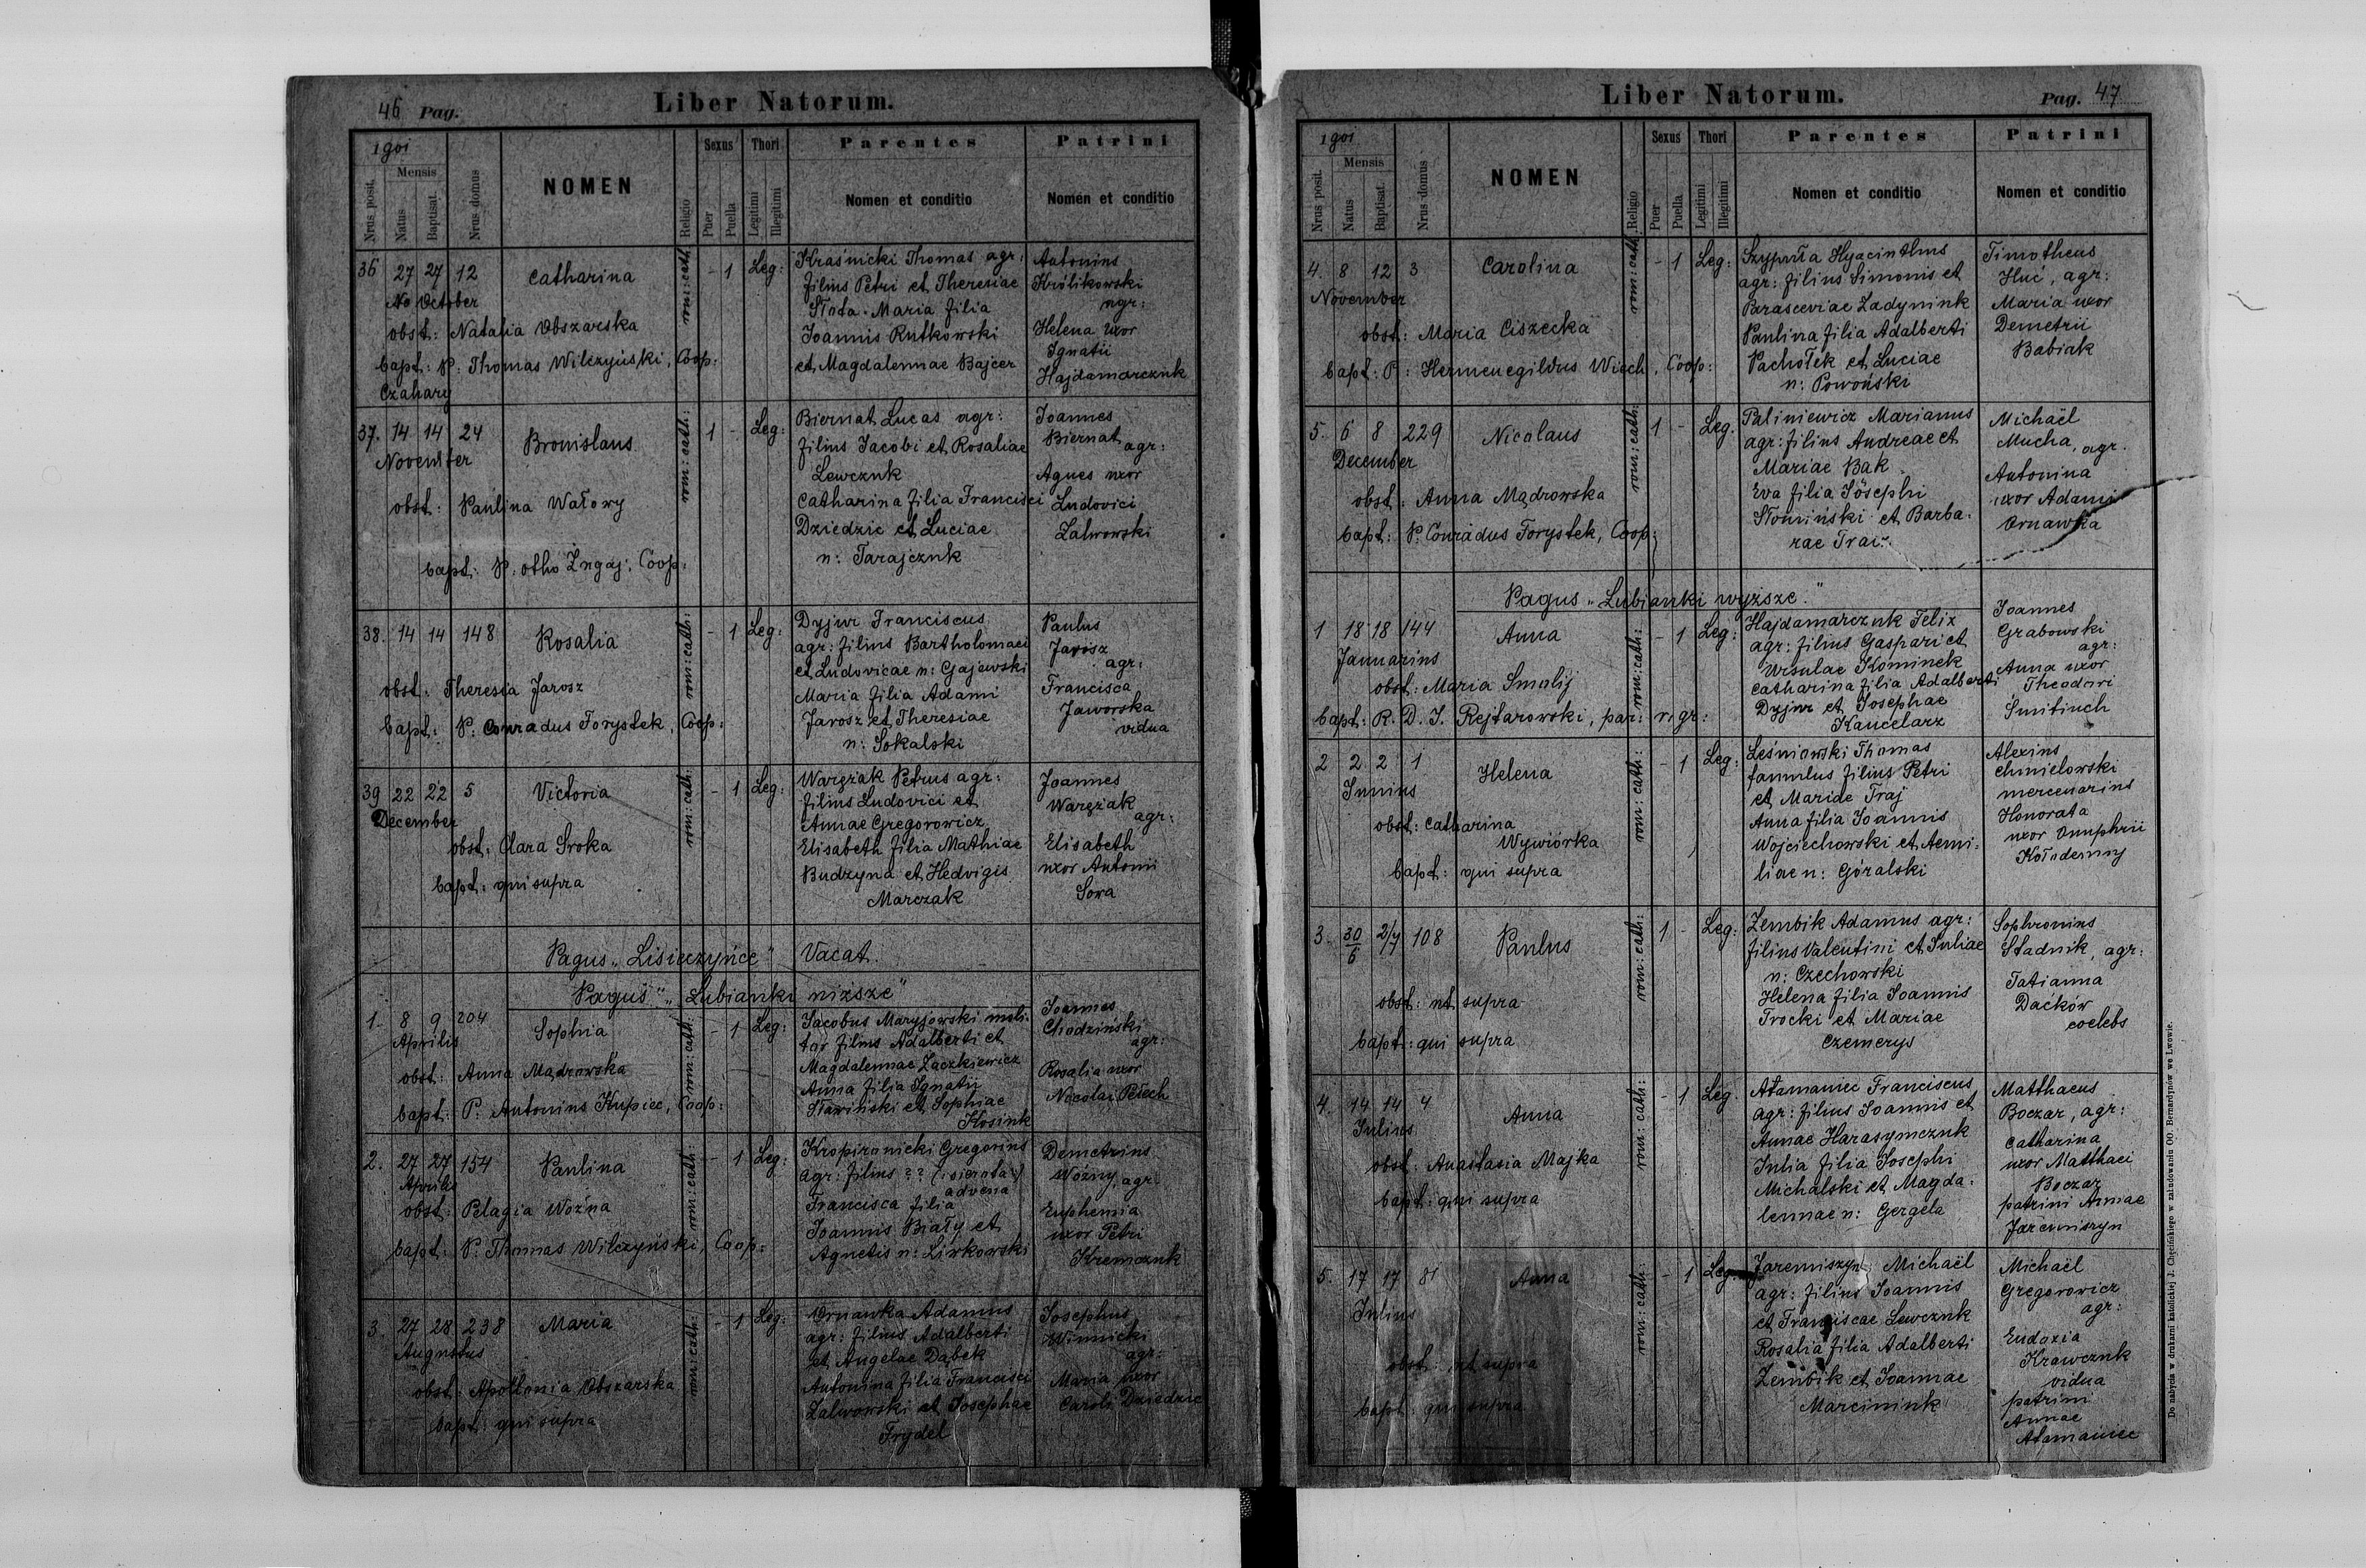 46 Pag.
Liber Natorum.
1901
Nrus posit.
Mensis
Natus
Baptisat.
Nrus domus
NOMEN
Religio
Sexus
Puer
Puella
Thori
Legitimi
Illegitimi
Parentes
Nomen et conditio
Patrini
Nomen et conditio
36 27 27 12 Catharina rom: cath: - 1 Leg:
October
obst: Natalia Obszarska
bapt: P. Thomas Wilczyński, Coop:
Czahary
Kraśnicki Thomas agr:
filius Petri et Theresiae
Słota. Maria filia
Joannis Rutkowski
et Magdalennae Bajcer
Antonius
Królikowski
agr:
Helena uxor
Ignatii
Hajdamarczuk
37. 14 14 24 Bronislaus rom: cath: 1 - Leg:
November
obst: Paulina Watowy
bapt: P. Otho Zngaj. Coop:
Biernat Lucas agr:
filius Jacobi et Rosaliae
Lewczuk
Catharina filia Francisci
Dziedzic et Luciae
n: Tarajczuk
Joannes
Biernat agr:
Agnes uxor
Ludovici
Zalwowski
38. 14 14 148 Rosalia rom: cath: - 1 Leg:
obst: Theresia Jarosz
bapt: P. Conradus Forystek, Coop:
Dyjur Franciscus
agr: filius Bartholomaei
et Ludovicae n: Gajewski
Maria filia Adami
Jarosz et Theresiae
n: Sokalski
Paulus
Jarosz
agr:
Francisca
Jaworska
vidua
39 22 22 5 Victoria rom: cath: - 1 Leg:
December
obst: Clara Sroka
bapt: qui supra
Wargzak Petrus agr:
filius Ludovici et
Annae Gregorowicz
Elisabeth filia Mathiae
Budzyna et Hedvigis
Marczak
Joannes
Wargzak
agr:
Elisabeth
uxor Antonii
Sowa
Pagus „Lisieczyńce" Vacat.
Pagus „Łubianki niższe"
1. 8 9 204 Sophia rom: cath: - 1 Leg:
Aprilis
obst: Anna Mądrowska
bapt: P. Antonius Kupiec, Coop:
Jacobus Maryjowski moli-
tor filius Adalberti et
Magdalennae Zaczkiewicz
Anna filia Ignatii
Sławiński et Sophiae
Kosiuk
Joannes
Chodziński
agr:
Rosalia uxor
Nicolai Pełech
2. 27 27 154 Paulina rom: cath: - 1 Leg:
Aprilis
obst: Pelagia Woźna
bapt: P. Thomas Wilczyński, Coop:
Kropiwnicki Gregorius
agr: filius ?? (:sierota:)
advena
Francisca filia
Joannis Biały et
Agnetis n: Liwkowski
Demetrius
Woźny, agr:
Euphemia
uxor Petri
Kremczuk
3. 27 28 238 Maria rom: cath: - 1 Leg:
Augustus
obst: Apollonia Obszarska
bapt: qui supra
Ornawka Adamus
agr: filius Adalberti
et Angelae Dąbek
Antonina filia Francisci
Zalwowski et Josephae
Frydel
Josephus
Winnicki
agr:
Maria uxor
Caroli Dziedzic
Liber Natorum.
Pag. 47
1901
Nrus posit.
Mensis
Natus
Baptisat.
Nrus domus
NOMEN
Religio
Sexus
Puer
Puella
Thori
Legitimi
Illegitimi
Parentes
Nomen et conditio
Patrini
Nomen et conditio
4. 8 12 3 Carolina rom: cath: - 1 Leg:
November
obst: Maria Ciszecka
bapt: P: Hermenegildus Wiech, Coop:
Szypuła Hyacinthus
agr: filius Simonis et
Parasceviae Zadyniuk
Paulina filia Adalberti
Pachołek et Luciae
n: Powoński
Timotheus
Huć, agr:
Maria uxor
Demetrii
Babiak
5. 6 8 229 Nicolaus rom: cath: 1 - Leg.
December
obst: Anna Mądrowska
bapt: P. Conradus Forystek, Coop:
Paliniewicz Marianus
agr: filius Andreae et
Mariae Bak
Eva filia Josephi
Słomiński et Barba-
rae Trač.
Michaël
Mucha, agr.
Antonina
uxor Adami
Ornawka
Pagus „Łubianki wyższe."
1 18 18 144 Anna rom: cath: - 1 Leg:
Januarius
obst: Maria Smalij
bapt: R. D. J. Rejtarowski, par: r. gr:
Hajdamarczuk Felix
agr: filius Gaspari et
Ursulae Kominek
Catharina filia Adalberti
Dyjur et Josephae
Kancelarz
Joannes
Grabowski
agr:
Anna uxor
Theodori
Smitiuch
2 2 2 1 Helena rom: cath: - 1 Leg:
Junius
obst: Catharina
Wywiórka
bapt: qui supra
Leśniowski Thomas
famulus filius Petri
et Mariae Traj
Anna filia Joannis
Wojciechowski et Aemi-
liae n: Góralski
Alexius
Chmielowski
mercenarius
Honorata
uxor Onuphrii
Kołodenny
3. 30/6 2/7 108 Paulus rom: cath: 1 - Leg:
obst: ut supra
bapt: qui supra
Zembik Adamus agr:
filius Valentini et Juliae
n: Czechowski
Helena filia Joannis
Trocki et Mariae
Czemerys
Sophronius
Stadnik, agr:
Tatianna
Daćków
coelebs
4. 14 14 4 Anna rom: cath: - 1 Leg.
Julius
obst: Anastasia Majka
bapt: qui supra
Atamaniec Franciscus
agr: filius Joannis et
Annae Harasymczuk
Julia filia Josephi
Michalski et Magda-
lennae n: Gergela
Matthaeus
Boczar, agr:
Catharina
uxor Matthaei
Boczar
patrini Annae
Jaremiszyn
5. 17 17 81 Anna rom: cath: - 1 Leg:
Julius
obst: ut supra
bapt: qui supra
Jaremiszyn Michaël
agr: filius Joannis
et Franciscae Lewczuk
Rosalia filia Adalberti
Zembik et Joannae
Marciniuk
Michaël
Gregorowicz
agr:
Eudoxia
Krawczuk
vidua
patrini
Annae
Atamaniec
Do nabycia w drukarni katolickiej J. Chęcińskiego w zabudowaniu OO. Bernardynów we Lwowie.